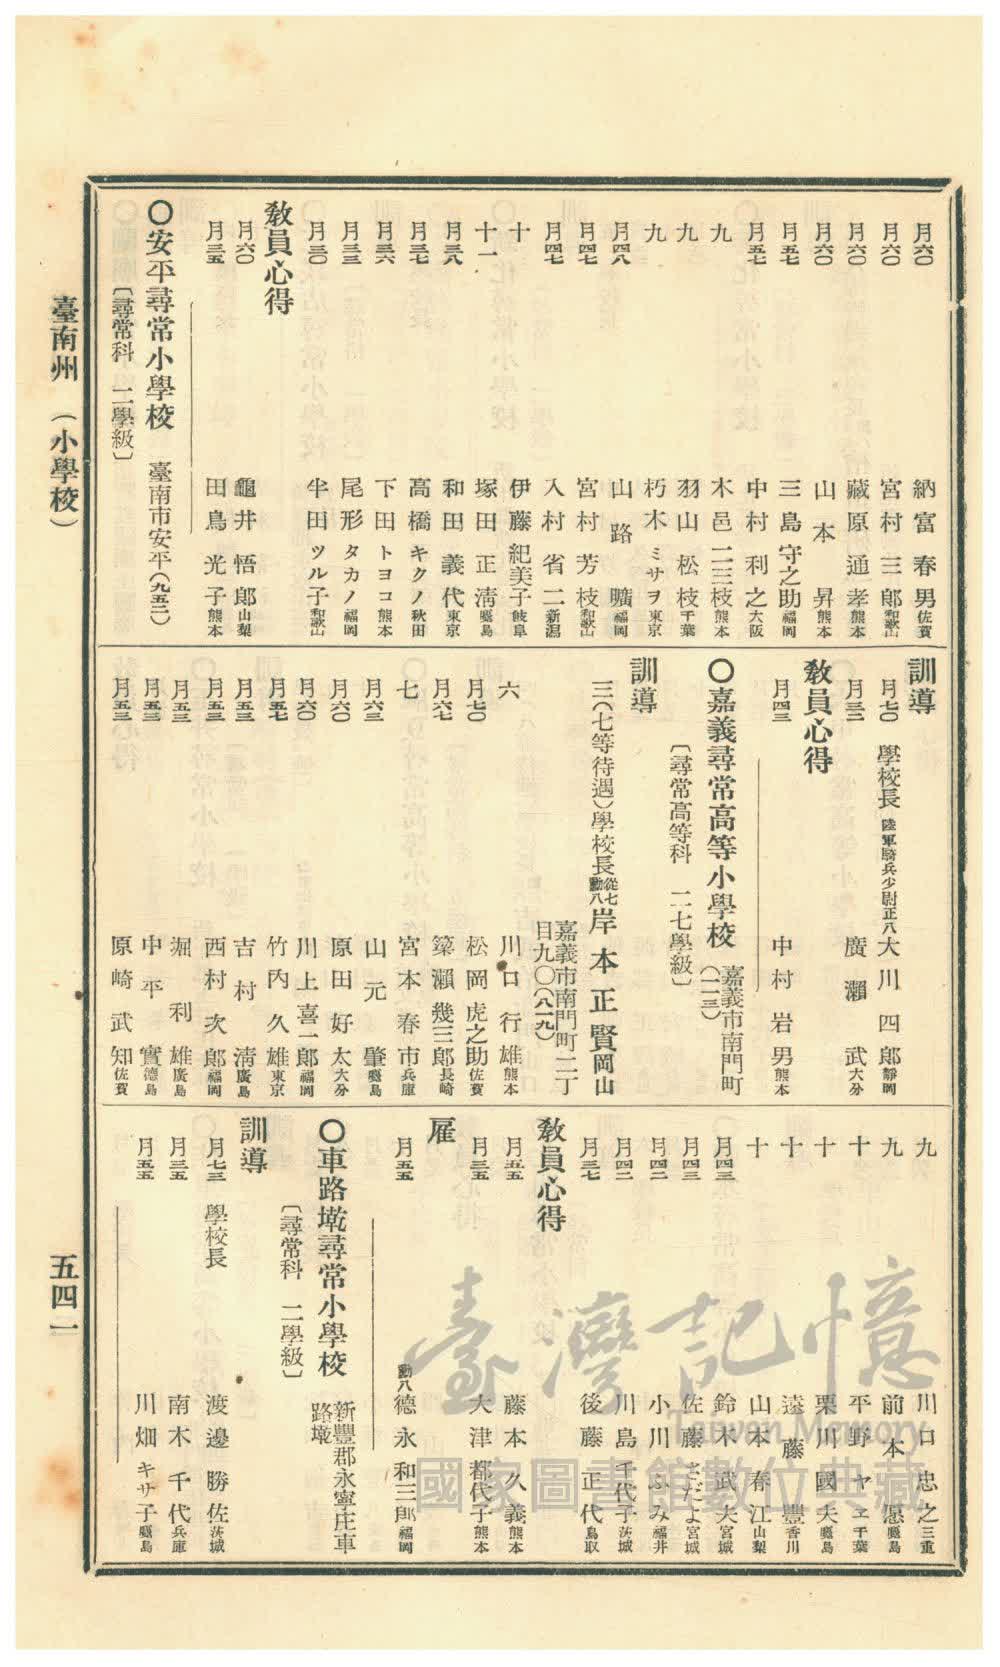 月六〇 納富春男 佐賀
月六〇 宮村三郎 和歌山
月六〇 藏原通孝 熊本
月六〇 山本昇 熊本
月五七 三島守之助 福岡
月五七 中村利之 大阪
九 木邑二三枝 熊本
九 羽山松枝 千葉
九 朽木ミサヲ 東京
月四八 山路曠 福岡
月四七 宮村芳枝 和歌山
月四七 入村省二 新潟
十 伊藤紀美子 岐阜
十一 塚田正淸 廣島
月三八 和田義代 東京
月三七 高橋キクノ 秋田
月三六 下田トヨコ 熊本
月三三 尾形タカノ 福岡
月三〇 半田ツル子 和歌山
敎員心得
月六〇 龜井悟郎 山梨
月三五 田島光子 熊本
〇安平尋常小學校 臺南市安平(九五二)
〔尋常科 二學級〕
訓導
月七〇 學校長 陸軍騎兵少尉正八 大川四郎 靜岡
月三二 廣瀨武 大分
敎員心得
月四三 中村岩男 熊本
〇嘉義尋常高等小學校 嘉義市南門町(一一三)
〔尋常高等科 二七學級〕
訓導
三(七等待遇)學校長 從七勳八 岸本正賢 岡山
嘉義市南門町二丁目九〇(八一九)
六 川口行雄 熊本
月七〇 松岡虎之助 佐賀
月六七 簗瀨幾三郎 長崎
七 宮本春市 兵庫
月六三 山元肇 鹿島
月六〇 原田好太 大分
月六〇 川上喜一郎 福岡
月五七 竹內久雄 東京
月五三 吉村淸 廣島
月五三 西村次郎 福岡
月五三 堀利雄 廣島
月五三 中平實 德島
月五三 原崎武知 佐賀
九 川口忠之 三重
九 前本愿 鹿島
十 平野ヤヱ 千葉
十 栗川國夫 鹿島
十 遠藤豐 香川
十 山本春江 山梨
月四三 鈴木武夫 宮城
月四三 佐藤さだよ 宮城
月四二 小川ふみ 福井
月四二 川島千代子 茨城
月三七 後藤正代 鳥取
敎員心得
月五五 藤本久義 熊本
月三五 大津都代子 熊本
雇
月五五 勳八 德永和三郎 福岡
〇車路墘尋常小學校 新豐郡永寧庄車路墘
〔尋常科 二學級〕
訓導
月七三 學校長 渡邊勝佐 茨城
月三五 南木千代 兵庫
月五五 川畑キサ子 鹿島
臺南州 (小學校)
五四一
臺灣記憶
Taiwan Memory
國家圖書館數位典藏